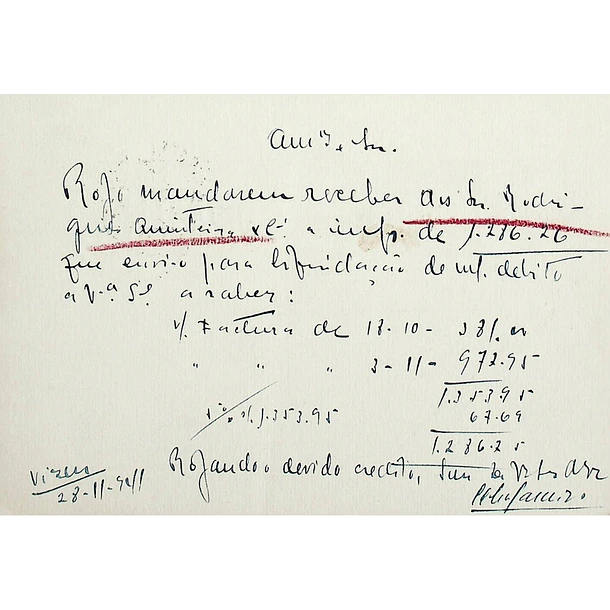 Am.º e Sr.
Rogo mandarem receber dos Sr. Rodri-
gues Quinteira & Cª a imp. de 1.286.26
que envio para liquidação de m/. debito
a V.ª Sª a saber:
v/. Factura de 18-10- 381.00
" " " 3-11- 972.95
1.353.95
5% s/ 1.353.95 67.69
1.286.25
Rogando o devido credito, sou de Vs
Vizeu
28-11-94